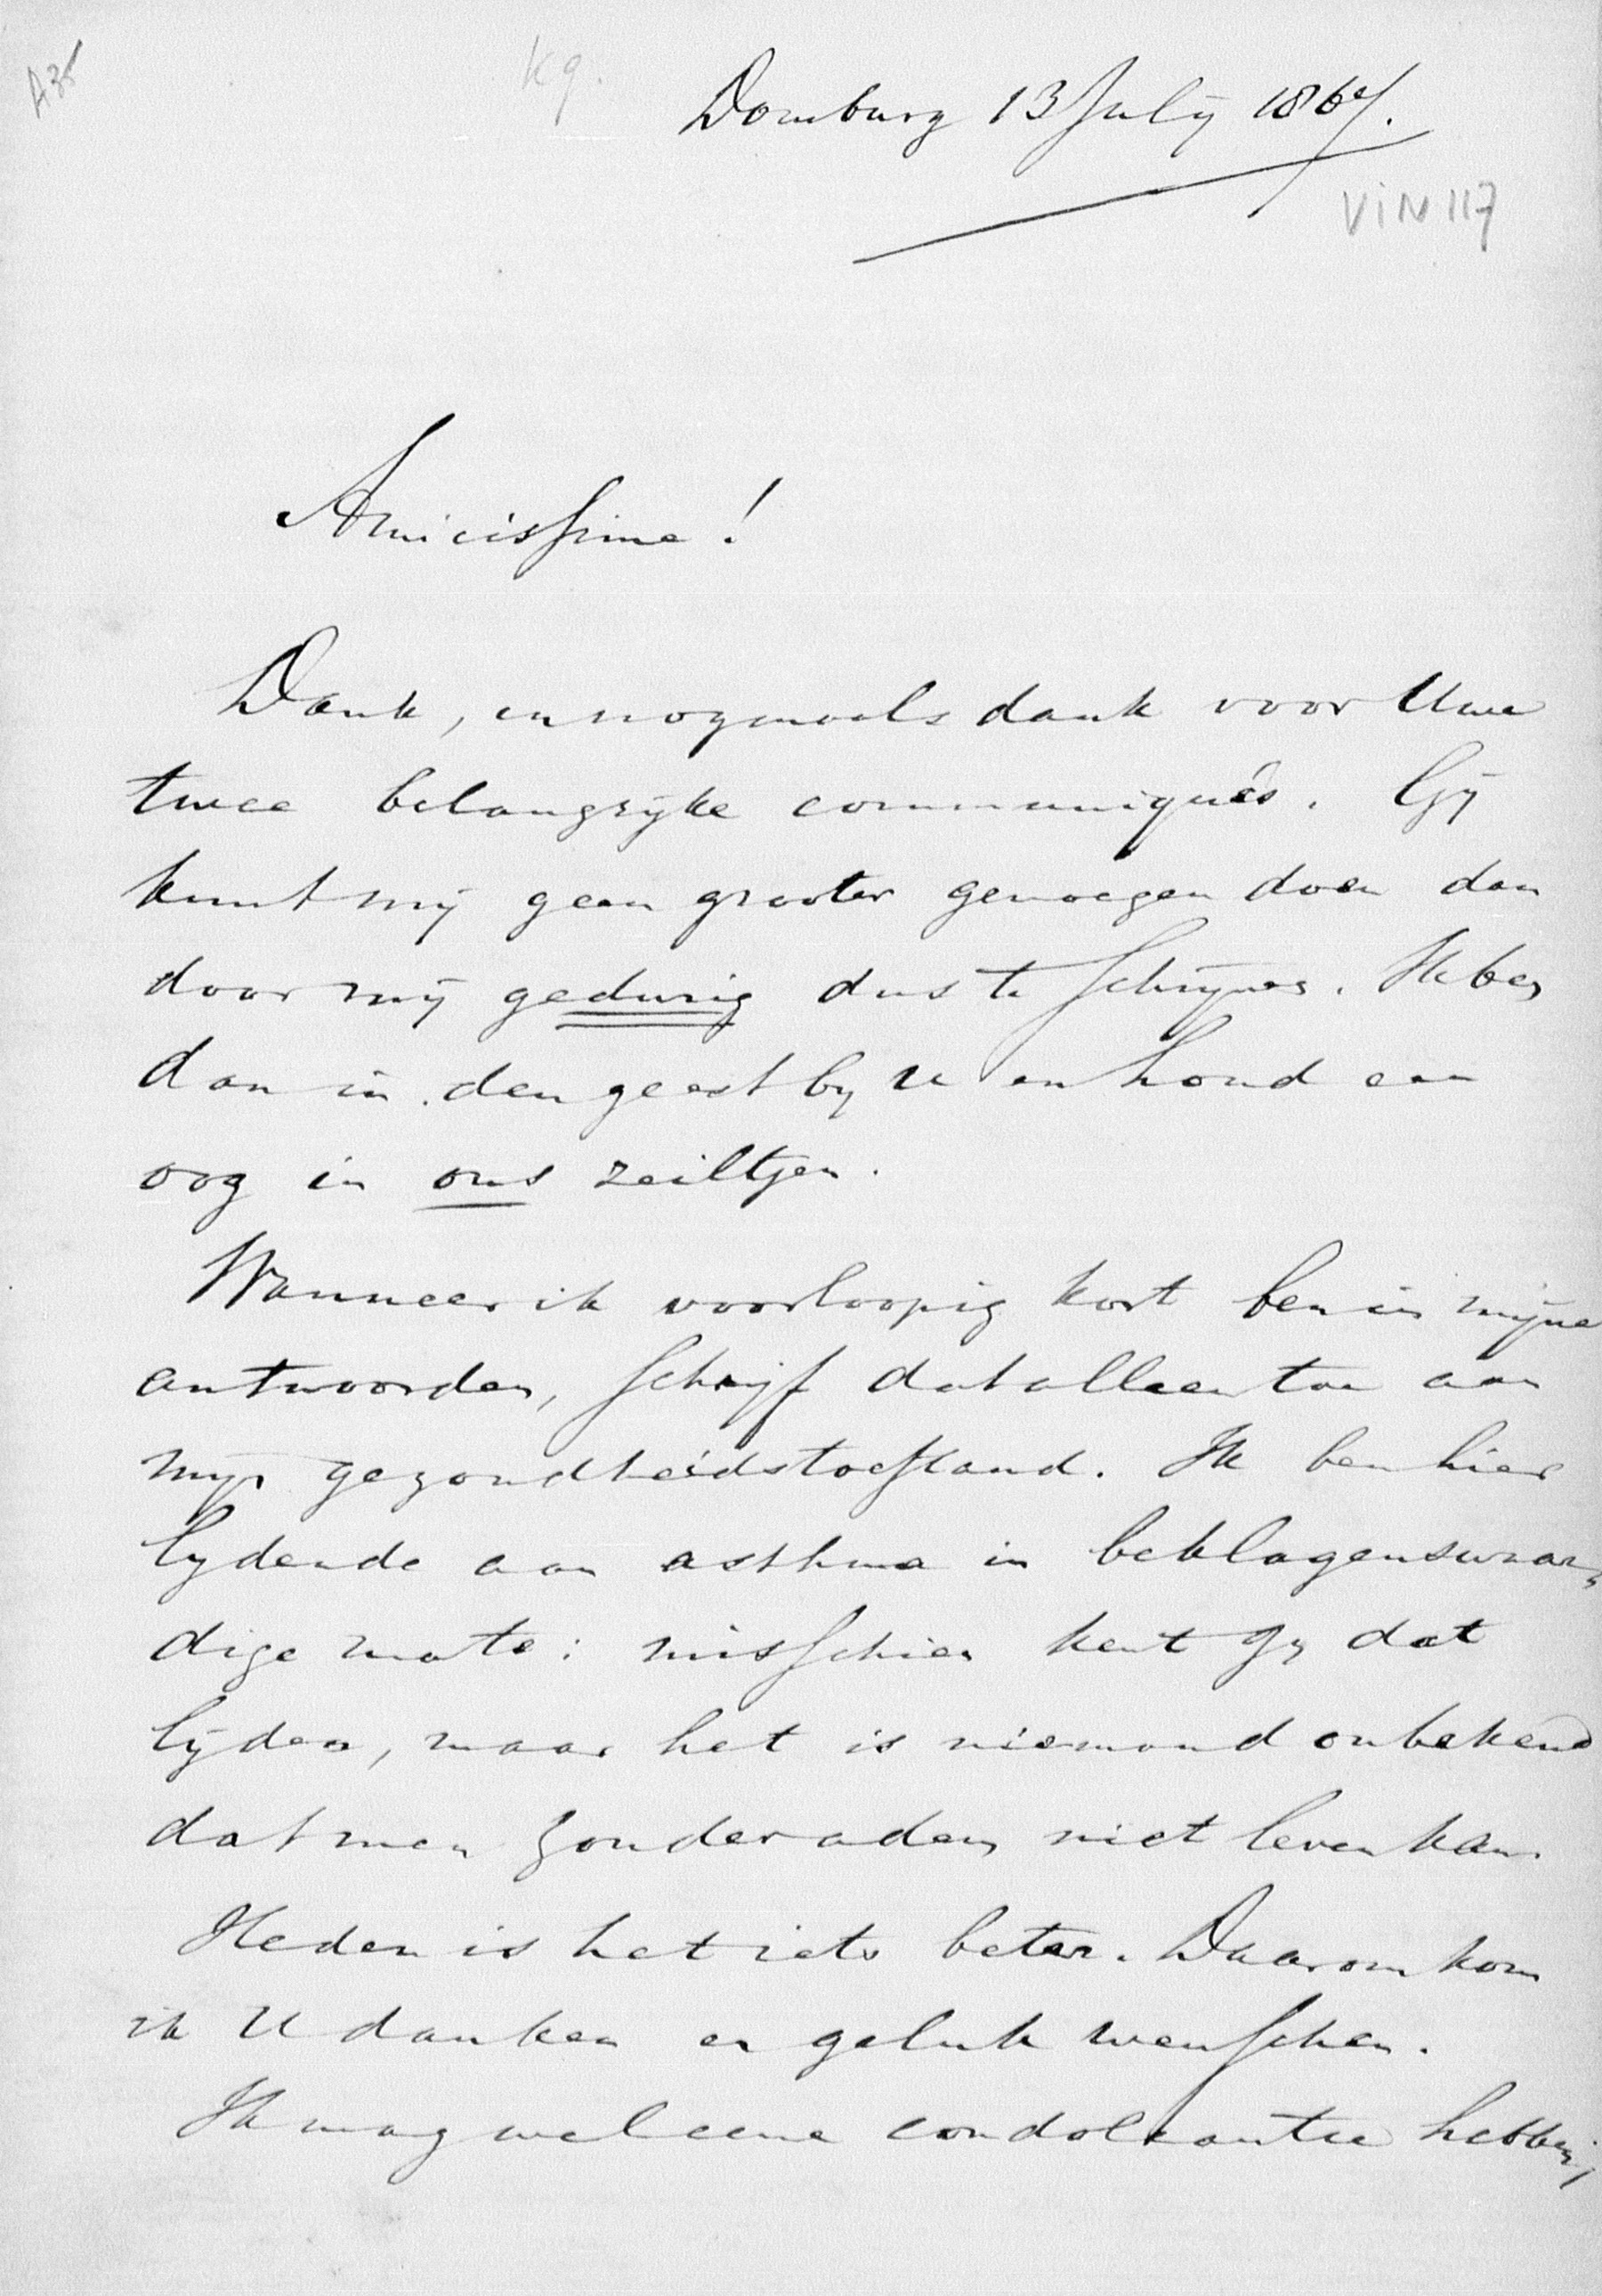 A35
K9.
Domburg 13 July 1867.
VIN 117
Amicissime!
Dank, en nogmaals dank voor Uwe
twee belangryke communiqués. Gÿ
kunt mÿ geen grooter genoegen doen dan
door mÿ gedurig dus te schryven. Ik ben
dan in den geest by U en houd een
oog in ons zeiltjen.
Wanneer ik voorloopig kort ben in mÿne
antwoorden, schryf dat alleen toe aan
myn gezondheidstoestand. Ik ben hier
lydende aan asthma in beklagenswaar-
dige mate: misschien kent Gy dat
lÿden, maar het is niemand onbekend
dat men zonder adem niet leven kan.
Heden is het iets beter. Daarom kom
ik U danken en geluk wenschen.
Ik mag wel eene condoleantie hebben;